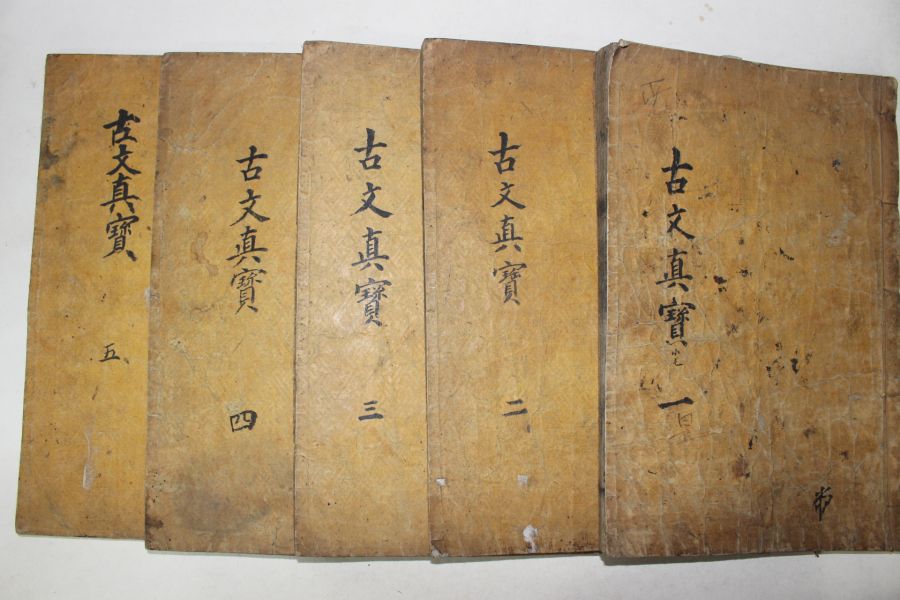 古文真寶
一
古文真寶
二
古文真寶
三
古文真寶
四
古文真寶
五